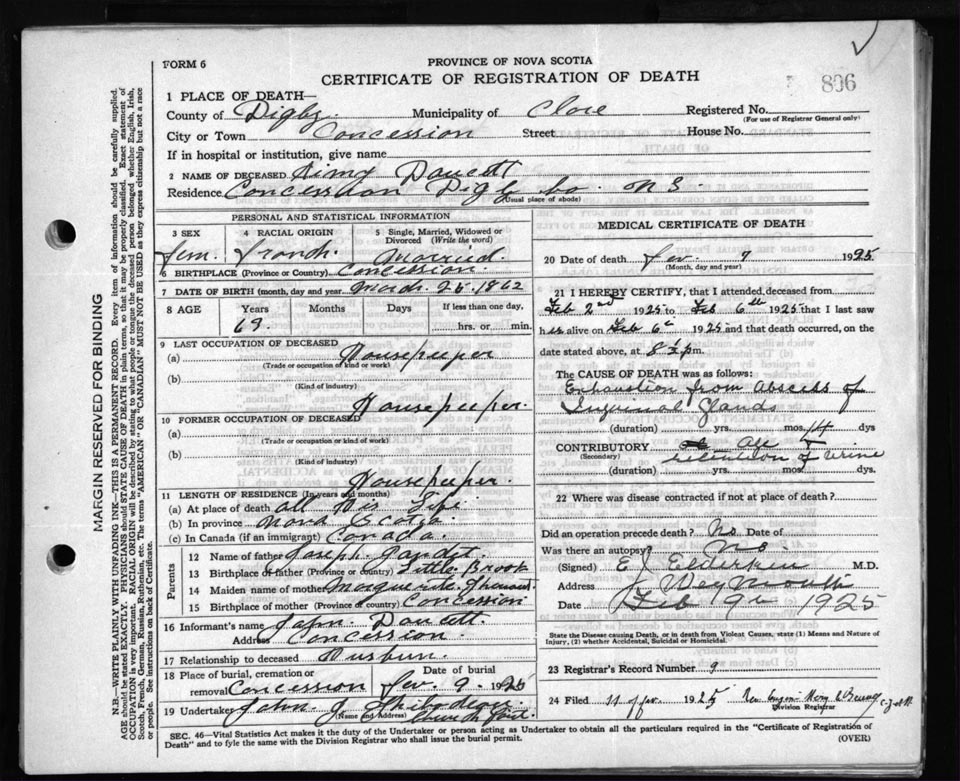 FORM 6
PROVINCE OF NOVA SCOTIA
CERTIFICATE OF REGISTRATION OF DEATH
806
1 PLACE OF DEATH—
County of Digby Municipality of Clare Registered No.
(For use of Registrar General only)
City or Town Concession Street House No.
If in hospital or institution, give name
2 NAME OF DECEASED Doucett
Residence Concession Digby Co. N S.
(Usual place of abode)
PERSONAL AND STATISTICAL INFORMATION
3 SEX 4 RACIAL ORIGIN 5 Single, Married, Widowed or Divorced (Write the word)
fem. french. Married.
6 BIRTHPLACE (Province or Country) Concession.
7 DATE OF BIRTH (month, day and year) March. 25. 1862
8 AGE Years Months Days If less than one day,
69. hrs. or min.
9 LAST OCCUPATION OF DECEASED
(a) Housekeeper
(Trade or occupation or kind of work)
(b)
(Kind of industry)
Housekeeper.
10 FORMER OCCUPATION OF DECEASED
(a)
(Trade or occupation or kind of work)
(b)
(Kind of industry)
Housekeeper.
11 LENGTH OF RESIDENCE (In years and months)
(a) At place of death all His Life
(b) In province Nova Scotia
(c) In Canada (if an immigrant) Canada.
Parents
12 Name of father Joseph
13 Birthplace of father (Province or country) Little Brook
14 Maiden name of mother Marguerite
15 Birthplace of mother (Province or country) Concession
16 Informant's name John Doucett.
Address Concession.
17 Relationship to deceased
18 Place of burial, cremation or removal Concession Date of burial fev. 9. 1925
19 Undertaker John J Thibodeau
(Name and Address) Church Point.
MEDICAL CERTIFICATE OF DEATH
20 Date of death fev. 7 1925
(Month, day and year)
21 I HEREBY CERTIFY, that I attended, deceased from
Feb 2nd 1925 to Feb 6th 1925 that I last saw
her alive on Feb 6th 1925 and that death occurred, on the
date stated above, at 8 p m.
The CAUSE OF DEATH was as follows:
Exhaustion from Abscess of
Inguinal Glands
(duration) yrs. mos. 14 dys
CONTRIBUTORY
(Secondary) retention of urine
(duration) yrs. mos. dys.
22 Where was disease contracted if not at place of death?
Did an operation precede death? No Date of
Was there an autopsy? No
(Signed) E J Elderkin M.D.
Address Weymouth
Date Feb 9th 1925
State the Disease causing Death, or in death from Violent Causes, state (1) Means and Nature of Injury, (2) whether Accidental, Suicidal or Homicidal.
23 Registrar's Record Number 9
24 Filed 11 of fev. 1925
Division Registrar
SEC. 46—Vital Statistics Act makes it the duty of the Undertaker or person acting as Undertaker to obtain all the particulars required in the "Certificate of Registration of
Death" and to fyle the same with the Division Registrar who shall issue the burial permit. (OVER)
MARGIN RESERVED FOR BINDING
N.B.—WRITE PLAINLY WITH UNFADING INK—THIS IS A PERMANENT RECORD. Every item of information should be carefully supplied.
AGE should be stated EXACTLY. PHYSICIANS should STATE CAUSE OF DEATH in plain terms, so that it may be properly classified. Exact statement of
OCCUPATION is very important. RACIAL ORIGIN will be described by stating to what people or tongue the deceased person belonged whether English, Irish,
Scotch, French, German, Russian, Ruthenian, etc. The terms "AMERICAN" OR "CANADIAN" MUST NOT BE USED as they express citizenship but not a race
or people. See instructions on back of Certificate.